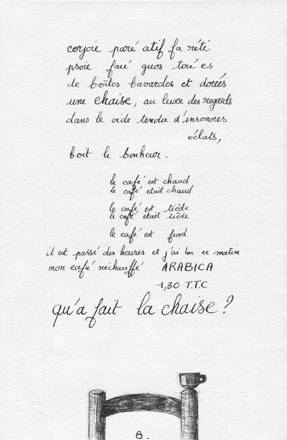 de boîtes bavardes et dorées
une chaise, au luxe des regards
dans le vide tendu d'insonores
éclats,
boit le bonheur.
le café est chaud
le café était chaud
le café est tiède
le café était tiède
le café est froid
il est passé des heures et j'ai bu ce matin
mon café réchauffé ARABICA
1,30 T.T.C
qu'a fait la chaise?
8.